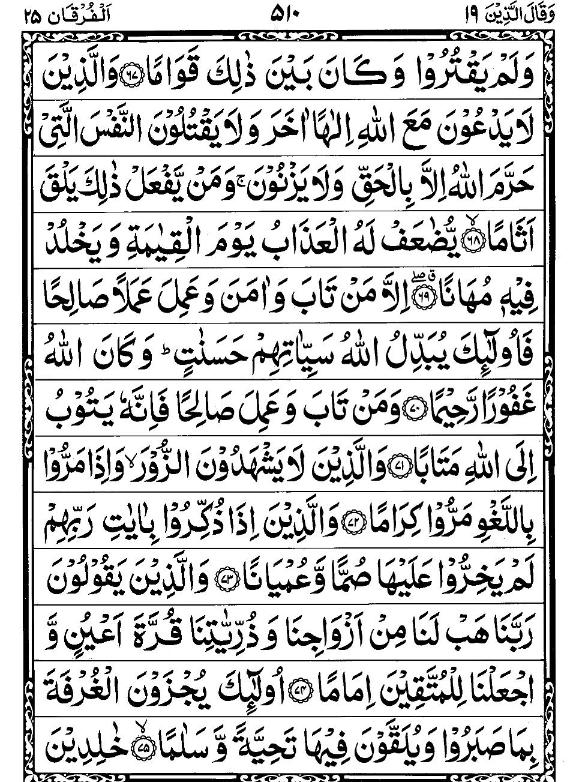 وَقَالَ الَّذِيْنَ ١٩ ٥١٠ اَلْفُرْقَان ٢٥
وَلَمْ يَقْتُرُوْا وَكَانَ بَيْنَ ذٰلِكَ قَوَامًا ﴿٦٧﴾ وَالَّذِيْنَ
لَا يَدْعُوْنَ مَعَ اللّٰهِ اِلٰهًا اٰخَرَ وَلَا يَقْتُلُوْنَ النَّفْسَ الَّتِىْ
حَرَّمَ اللّٰهُ اِلَّا بِالْحَقِّ وَلَا يَزْنُوْنَ ۚ وَمَنْ يَّفْعَلْ ذٰلِكَ يَلْقَ
اَثَامًا ﴿٦٨﴾ يُّضٰعَفْ لَهُ الْعَذَابُ يَوْمَ الْقِيٰمَةِ وَيَخْلُدْ
فِيْهٖ مُهَانًا ﴿٦٩﴾ اِلَّا مَنْ تَابَ وَاٰمَنَ وَعَمِلَ عَمَلًا صَالِحًا
فَاُولٰٓئِكَ يُبَدِّلُ اللّٰهُ سَيِّاٰتِهِمْ حَسَنٰتٍ ؕ وَكَانَ اللّٰهُ
غَفُوْرًا رَّحِيْمًا ﴿٧٠﴾ وَمَنْ تَابَ وَعَمِلَ صَالِحًا فَاِنَّهٗ يَتُوْبُ
اِلَى اللّٰهِ مَتَابًا ﴿٧١﴾ وَالَّذِيْنَ لَا يَشْهَدُوْنَ الزُّوْرَ ۙ وَاِذَا مَرُّوْا
بِاللَّغْوِ مَرُّوْا كِرَامًا ﴿٧٢﴾ وَالَّذِيْنَ اِذَا ذُكِّرُوْا بِاٰيٰتِ رَبِّهِمْ
لَمْ يَخِرُّوْا عَلَيْهَا صُمًّا وَّعُمْيَانًا ﴿٧٣﴾ وَالَّذِيْنَ يَقُوْلُوْنَ
رَبَّنَا هَبْ لَنَا مِنْ اَزْوَاجِنَا وَذُرِّيّٰتِنَا قُرَّةَ اَعْيُنٍ وَّ
اجْعَلْنَا لِلْمُتَّقِيْنَ اِمَامًا ﴿٧٤﴾ اُولٰٓئِكَ يُجْزَوْنَ الْغُرْفَةَ
بِمَا صَبَرُوْا وَيُلَقَّوْنَ فِيْهَا تَحِيَّةً وَّسَلٰمًا ﴿٧٥﴾ خٰلِدِيْنَ